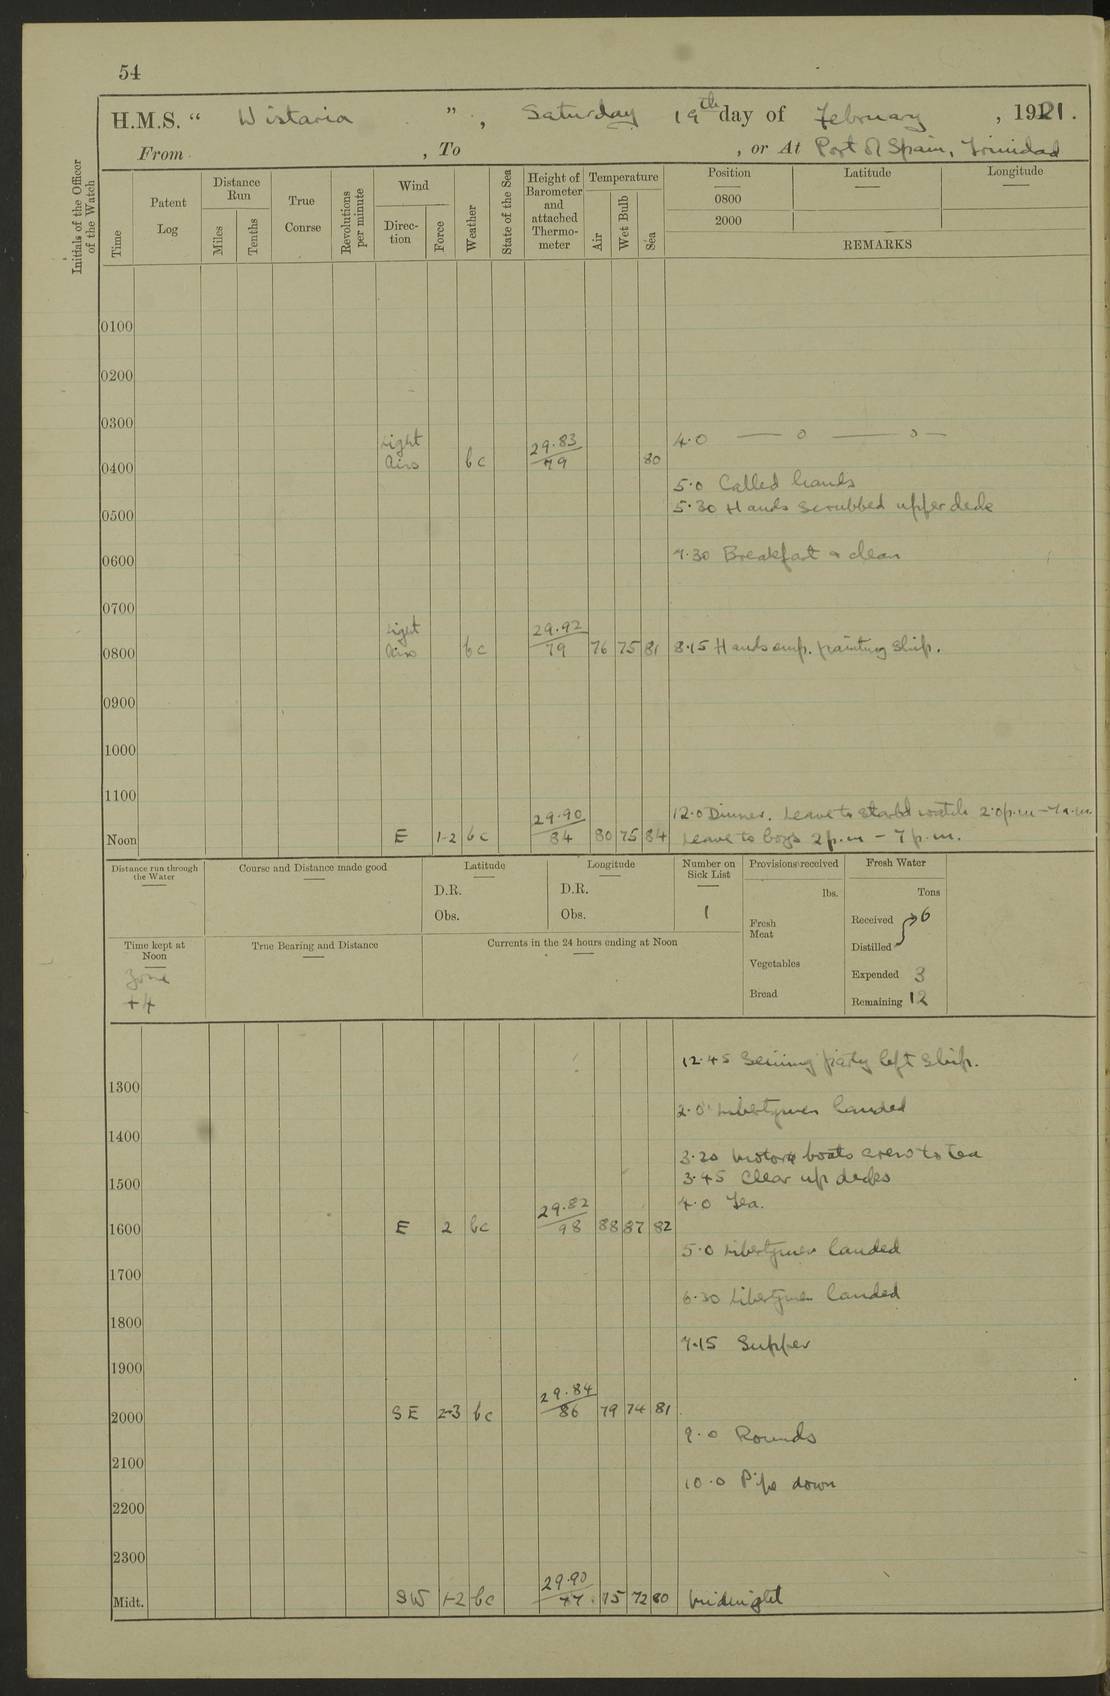 54
H.M.S. “ Wistaria ” , Saturday 19th day of February , 1921.
From , To , or At Port of Spain, Trinidad
Initials of the Officer of the Watch
Time
Patent Log
Distance Run
Miles
Tenths
True Course
Revolutions per minute
Wind
Direction
Force
Weather
State of the Sea
Height of Barometer and attached Thermometer
Temperature
Air
Wet Bulb
Sea
Position Latitude Longitude
0800
2000
REMARKS
0100
0200
0300
Light 29.83 4.0 — o — o —
0400 Airs bc 79 80
5.0 Called hands
0500 5.30 Hands scrubbed upper deck
0600 7.30 Breakfast & clean
0700
Light 29.92
0800 airs bc 79 76 75 81 8.15 Hands emp. painting ship.
0900
1000
1100
29.90 12.0 Dinner. Leave to starbd watch 2.0 p.m – 7 a.m.
Noon E 1-2 bc 84 80 75 84 Leave to boys 2 p.m – 7 p.m.
Distance run through the Water
Course and Distance made good
Latitude
D.R.
Obs.
Longitude
D.R.
Obs.
Number on Sick List
1
Provisions received
lbs.
Fresh Meat
Vegetables
Bread
Fresh Water
Tons
Received 6
Distilled
Expended 3
Remaining 12
Time kept at Noon
Zone
+4
True Bearing and Distance
Currents in the 24 hours ending at Noon
12.45 Seining party left ship.
1300
2.0 Libertymen landed
1400
3.20 Motor boats crew to tea
1500 3.45 Clear up decks
29.82 4.0 Tea.
1600 E 2 bc 98 88 87 82
5.0 Libertymen landed
1700
6.30 Libertymen landed
1800
7.15 Supper
1900
29.84
2000 SE 2-3 bc 86 79 74 81
9.0 Rounds
2100
10.0 Pipe down
2200
2300
29.90
Midt. SW 1-2 bc 77 75 72 80 Midnight